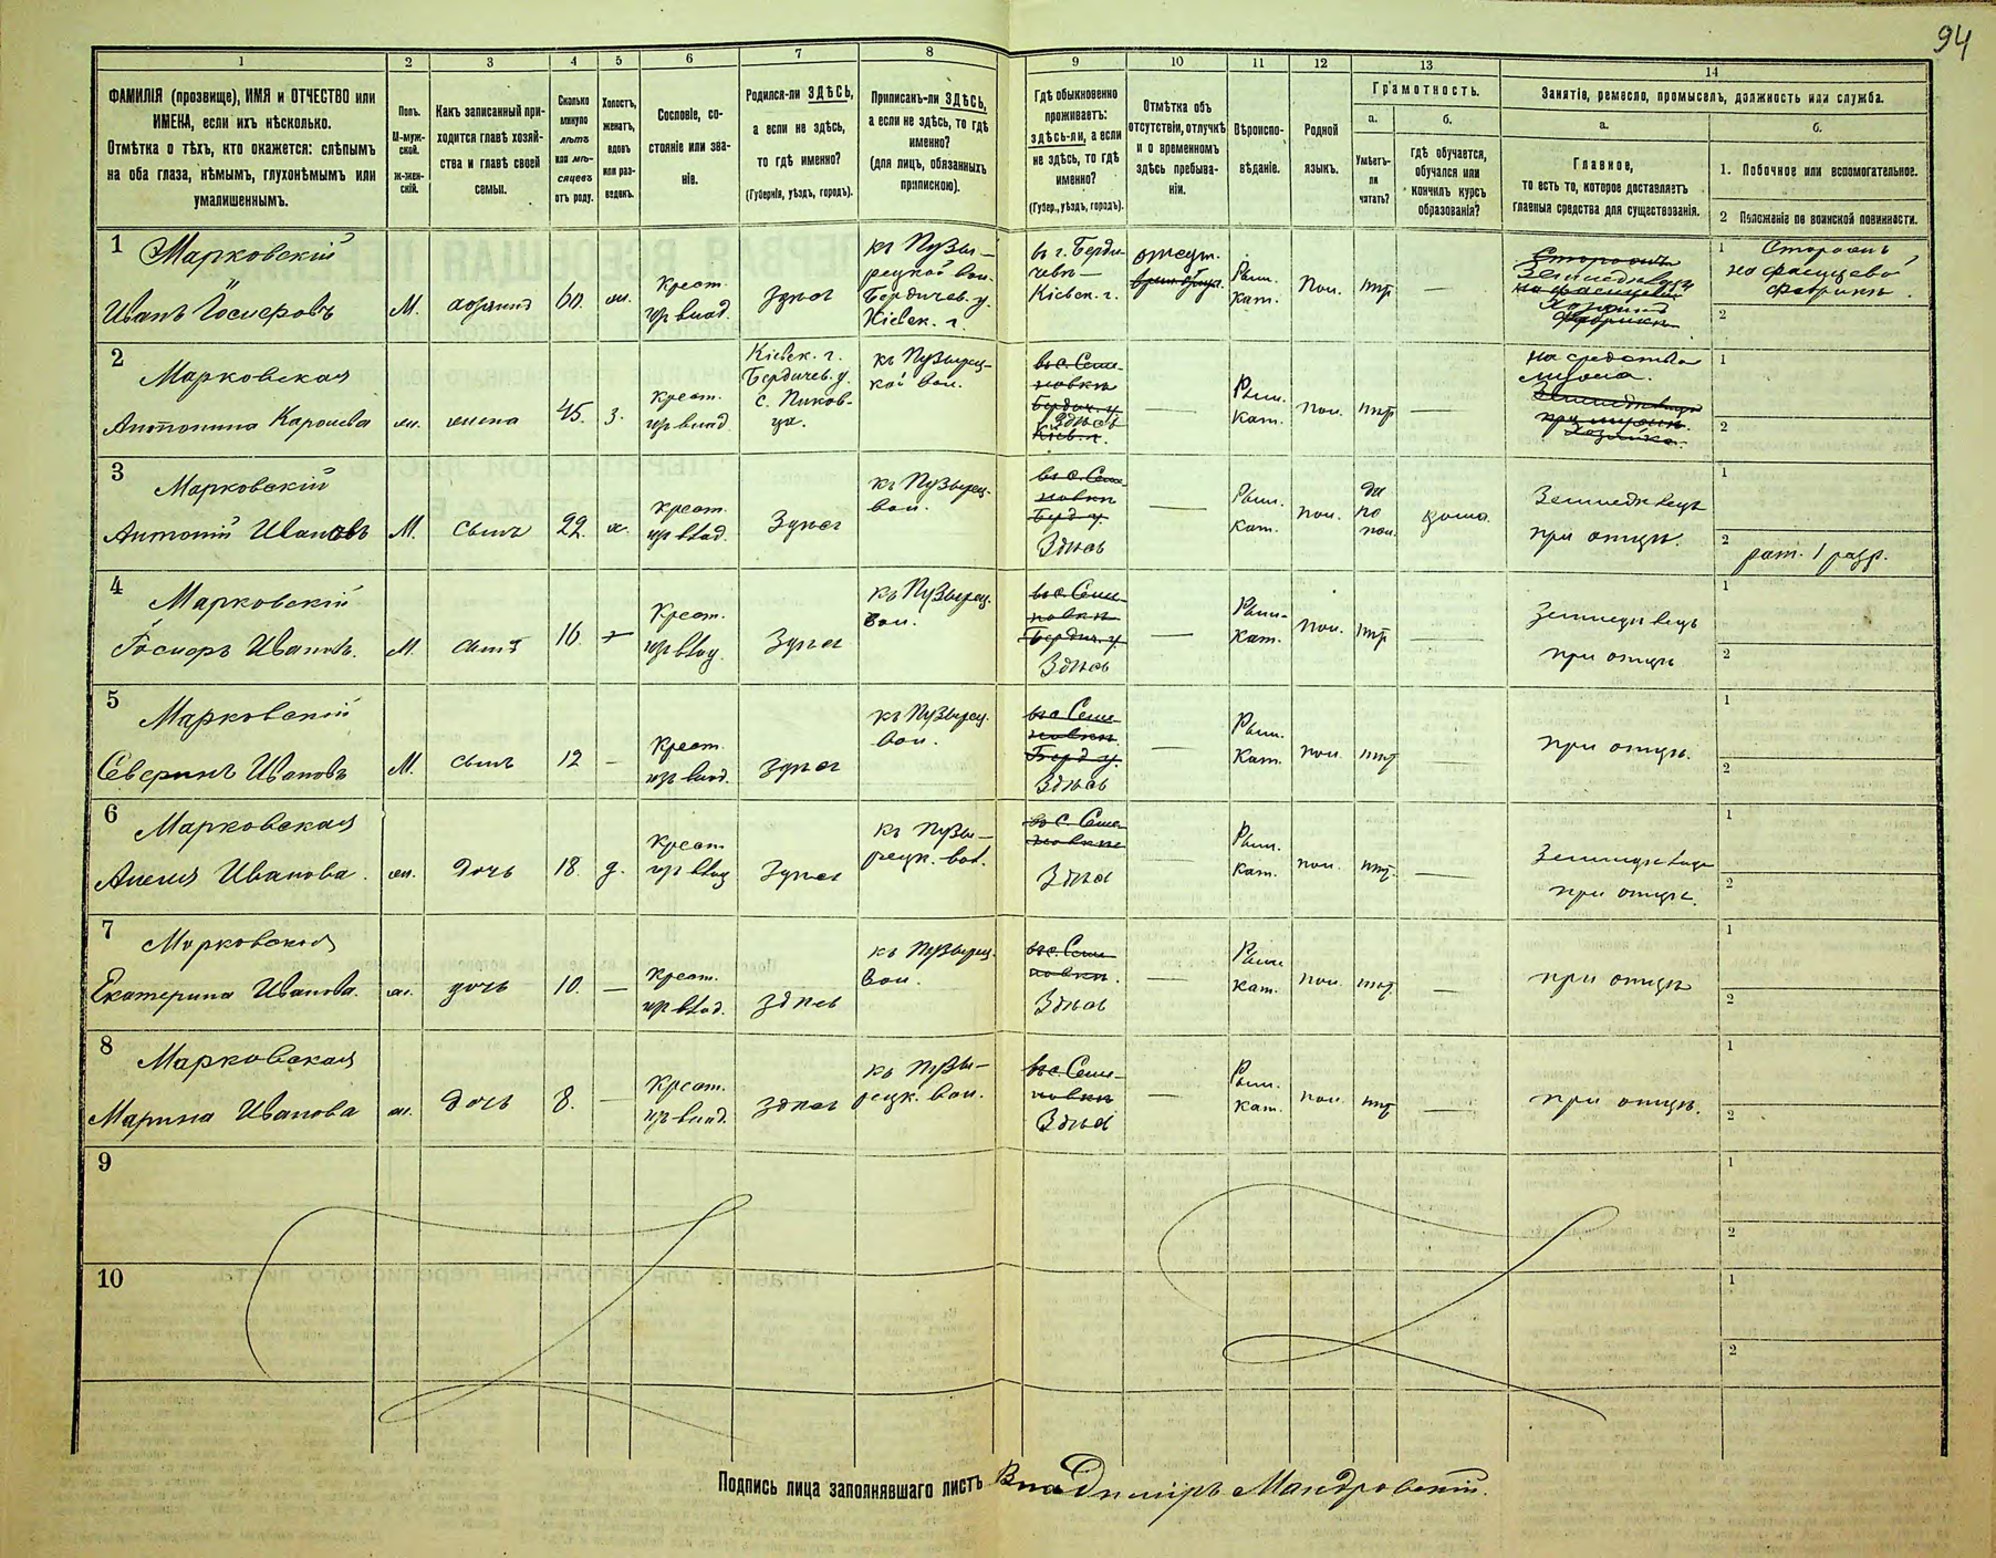 94
1 2 3 4 5 6 7 8 9 10 11 12 13 14
ФАМИЛІЯ (прозвище), ИМЯ и ОТЧЕСТВО или
ИМЕНА, если ихъ нѣсколько.
Отмѣтка о тѣхъ, кто окажется: слѣпымъ
на оба глаза, нѣмымъ, глухонѣмымъ или
умалишеннымъ.
Полъ.
М-муж-
ской.
Ж-жен-
скій.
Какъ записанный при-
ходится главѣ хозяй-
ства и главѣ своей
семьи.
Сколько
минуло
лѣтъ
или мѣ-
сяцевъ
отъ роду.
Холостъ,
женатъ,
вдовъ
или раз-
веденъ.
Сословіе, со-
стояніе или зва-
ніе.
Родился-ли ЗДѢСЬ,
а если не здѣсь,
то гдѣ именно?
(Губернія, уѣздъ, городъ).
Приписанъ-ли ЗДѢСЬ,
а если не здѣсь, то гдѣ
именно?
(для лицъ, обязанныхъ
припискою).
Гдѣ обыкновенно
проживаетъ:
здѣсь-ли, а если
не здѣсь, то гдѣ
именно?
(Губер., уѣздъ, городъ).
Отмѣтка объ
отсутствіи, отлучкѣ
и о временномъ
здѣсь пребыва-
ніи.
Вѣроиспо-
вѣданіе.
Родной
языкъ.
Грамотность.
а.
Умѣетъ-
ли
читать?
б.
гдѣ обучается,
обучался или
кончилъ курсъ
образованія?
Занятіе, ремесло, промыселъ, должность или служба.
а.
Главное,
то есть то, которое доставляетъ
главныя средства для существованія.
б.
1. Побочное или вспомогательное.
2 Положеніе по воинской повинности.
1 Марковскій
Иванъ Іосифовъ
М. хозяинъ 60.
Крест.
изъ влад.
Здѣсь
къ Пузы-
рецкой вол.
Бердичев. у.
Кіевск. г.
въ г. Берди-
чевѣ
Кіевск. г.
отсут.
Рим.
Кат.
Пол. нѣт —
Земледѣлецъ
Хозяинъ
1 Сторожъ
на
фабрикѣ.
2
2 Марковская
Антонина Каролева
жена 45. з.
Крест.
изъ влад.
Кіевск. г.
Бердичев. у.
с. Пиков-
ца.
къ Пузырец-
кой вол.
въ с. Семе-
новкѣ
Бердич. у.
Здѣсь
Кіев. г.
—
Рим.
Кат.
пол. нѣт —
на средства
мужа.
Земледѣлецъ
при мужѣ.
Хозяйка.
1
2
3 Марковскій
Антоній Ивановъ
М. сынъ 22. х.
Крест.
изъ влад.
Здѣсь
къ Пузырец.
вол.
въ с. Семе-
новкѣ
Берд. у.
Здѣсь
—
Рим.
Кат.
пол.
да
по
пол.
дома.
Земледѣлецъ
при отцѣ.
1
2
рат. 1 разр.
4 Марковскій
Іосифъ Ивановъ.
М. сынъ 16.
Крест.
изъ влад.
Здѣсь
къ Пузырец.
вол.
въ с. Семе-
новкѣ
Бердич. у.
Здѣсь
—
Рим.
Кат.
пол. нѣт —
Земледѣлецъ
при отцѣ
1
2
5 Марковскій
Северинъ Ивановъ
М. сынъ 12 —
Крест.
изъ влад.
Здѣсь
къ Пузырец.
вол.
въ с. Семе-
новкѣ.
Берд. у.
Здѣсь
—
Рим.
Кат.
пол. нѣт —
при отцѣ.
1
2
6 Марковская
Анеля Иванова.
дочь 18. д.
Крест.
изъ влад
Здѣсь
къ Пузы-
рецк. вол.
въ с. Семе-
новкѣ
Здѣсь
—
Рим.
Кат.
пол. нѣт. —
Земледѣлецъ
при отцѣ.
1
2
7 Марковская
Екатерина Иванова.
дочь 10. —
Крест.
изъ влад.
здѣсь
къ Пузырец.
вол.
въ с. Семе-
новкѣ.
Здѣсь
—
Рим.
Кат.
пол. нѣт. —
при отцѣ
1
2
8 Марковская
Марина Иванова
дочь 8. —
Крест.
изъ влад.
здѣсь
къ Пузы-
рецк. вол.
въ с. Семе-
новкѣ
Здѣсь
—
Рим.
Кат.
пол. нѣт —
при отцѣ.
1
2
9
1
2
10
1
2
Подпись лица заполнявшаго листъ Владиміръ Мандровскій.